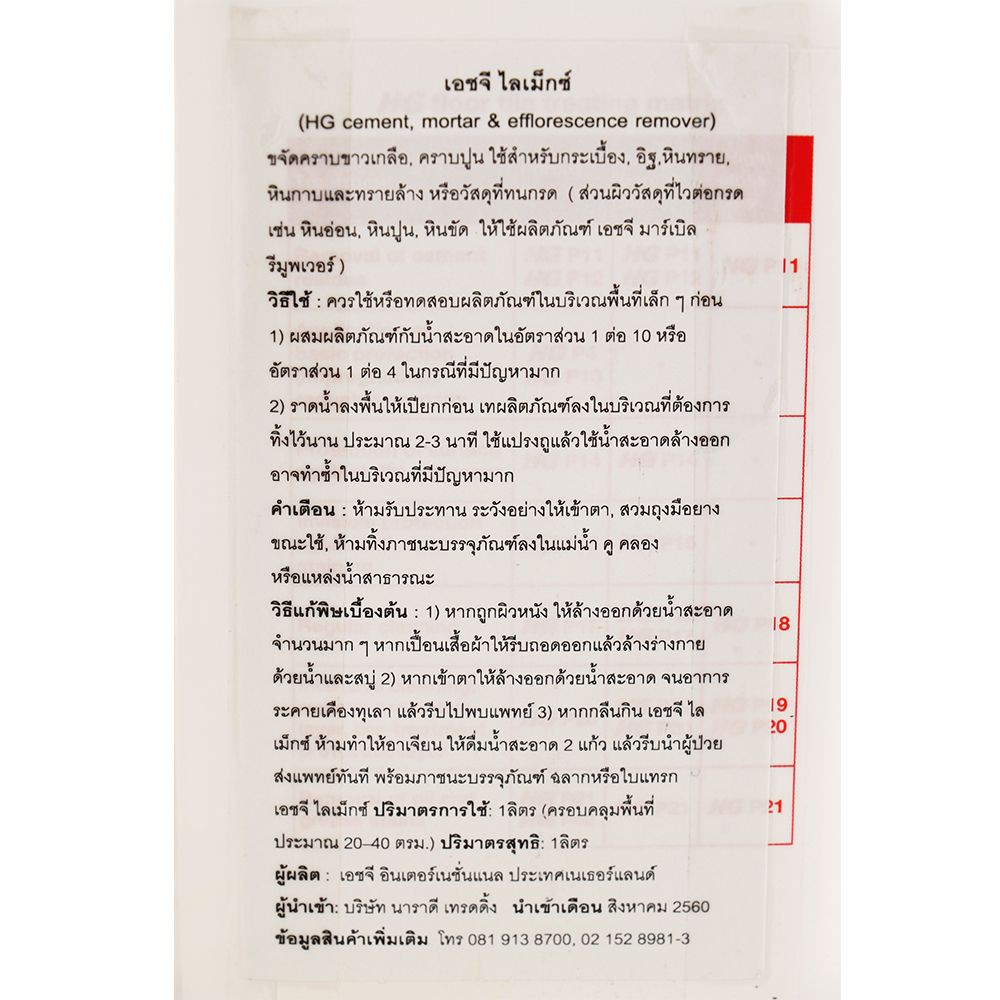 เอชจี ไลเม็กซ์
(HG cement, mortar & efflorescence remover)
ขจัดคราบขาวเกลือ, คราบปูน ใช้สำหรับกระเบื้อง, อิฐ,หินทราย,
หินกาบและทรายล้าง หรือวัสดุที่ทนกรด ( ส่วนผิววัสดุที่ไวต่อกรด
เช่น หินอ่อน, หินปูน, หินขัด ให้ใช้ผลิตภัณฑ์ เอชจี มาร์เบิล
รีมูพเวอร์ )
วิธีใช้ : ควรใช้หรือทดสอบผลิตภัณฑ์ในบริเวณพื้นที่เล็ก ๆ ก่อน
1) ผสมผลิตภัณฑ์กับน้ำสะอาดในอัตราส่วน 1 ต่อ 10 หรือ
อัตราส่วน 1 ต่อ 4 ในกรณีที่มีปัญหามาก
2) ราดน้ำลงพื้นให้เปียกก่อน เทผลิตภัณฑ์ลงในบริเวณที่ต้องการ
ทิ้งไว้นาน ประมาณ 2-3 นาที ใช้แปรงถูแล้วใช้น้ำสะอาดล้างออก
อาจทำซ้ำในบริเวณที่มีปัญหามาก
คำเตือน : ห้ามรับประทาน ระวังอย่างให้เข้าตา, สวมถุงมือยาง
ขณะใช้, ห้ามทิ้งภาชนะบรรจุภัณฑ์ลงในแม่น้ำ คู คลอง
หรือแหล่งน้ำสาธารณะ
วิธีแก้พิษเบื้องต้น : 1) หากถูกผิวหนัง ให้ล้างออกด้วยน้ำสะอาด
จำนวนมาก ๆ หากเปื้อนเสื้อผ้าให้รีบถอดออกแล้วล้างร่างกาย
ด้วยน้ำและสบู่ 2) หากเข้าตาให้ล้างออกด้วยน้ำสะอาด จนอาการ
ระคายเคืองทุเลา แล้วรีบไปพบแพทย์ 3) หากกลืนกิน เอชจี ไล
เม็กซ์ ห้ามทำให้อาเจียน ให้ดื่มน้ำสะอาด 2 แก้ว แล้วรีบนำผู้ป่วย
ส่งแพทย์ทันที พร้อมภาชนะบรรจุภัณฑ์ ฉลากหรือใบแทรก
เอชจี ไลเม็กซ์ ปริมาตรการใช้: 1ลิตร (ครอบคลุมพื้นที่
ประมาณ 20–40 ตรม.) ปริมาตรสุทธิ: 1ลิตร
ผู้ผลิต : เอชจี อินเตอร์เนชั่นแนล ประเทศเนเธอร์แลนด์
ผู้นำเข้า: บริษัท นาราดี เทรดดิ้ง นำเข้าเดือน สิงหาคม 2560
ข้อมูลสินค้าเพิ่มเติม โทร 081 913 8700, 02 152 8981-3